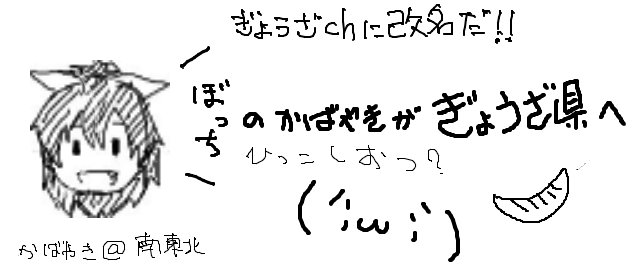 ぎょうざchに改名だ!!
ぼっち
のかばやきがぎょうざ県へ
ひっこしおつ?
(´;ω;`)
かばやき@南東北